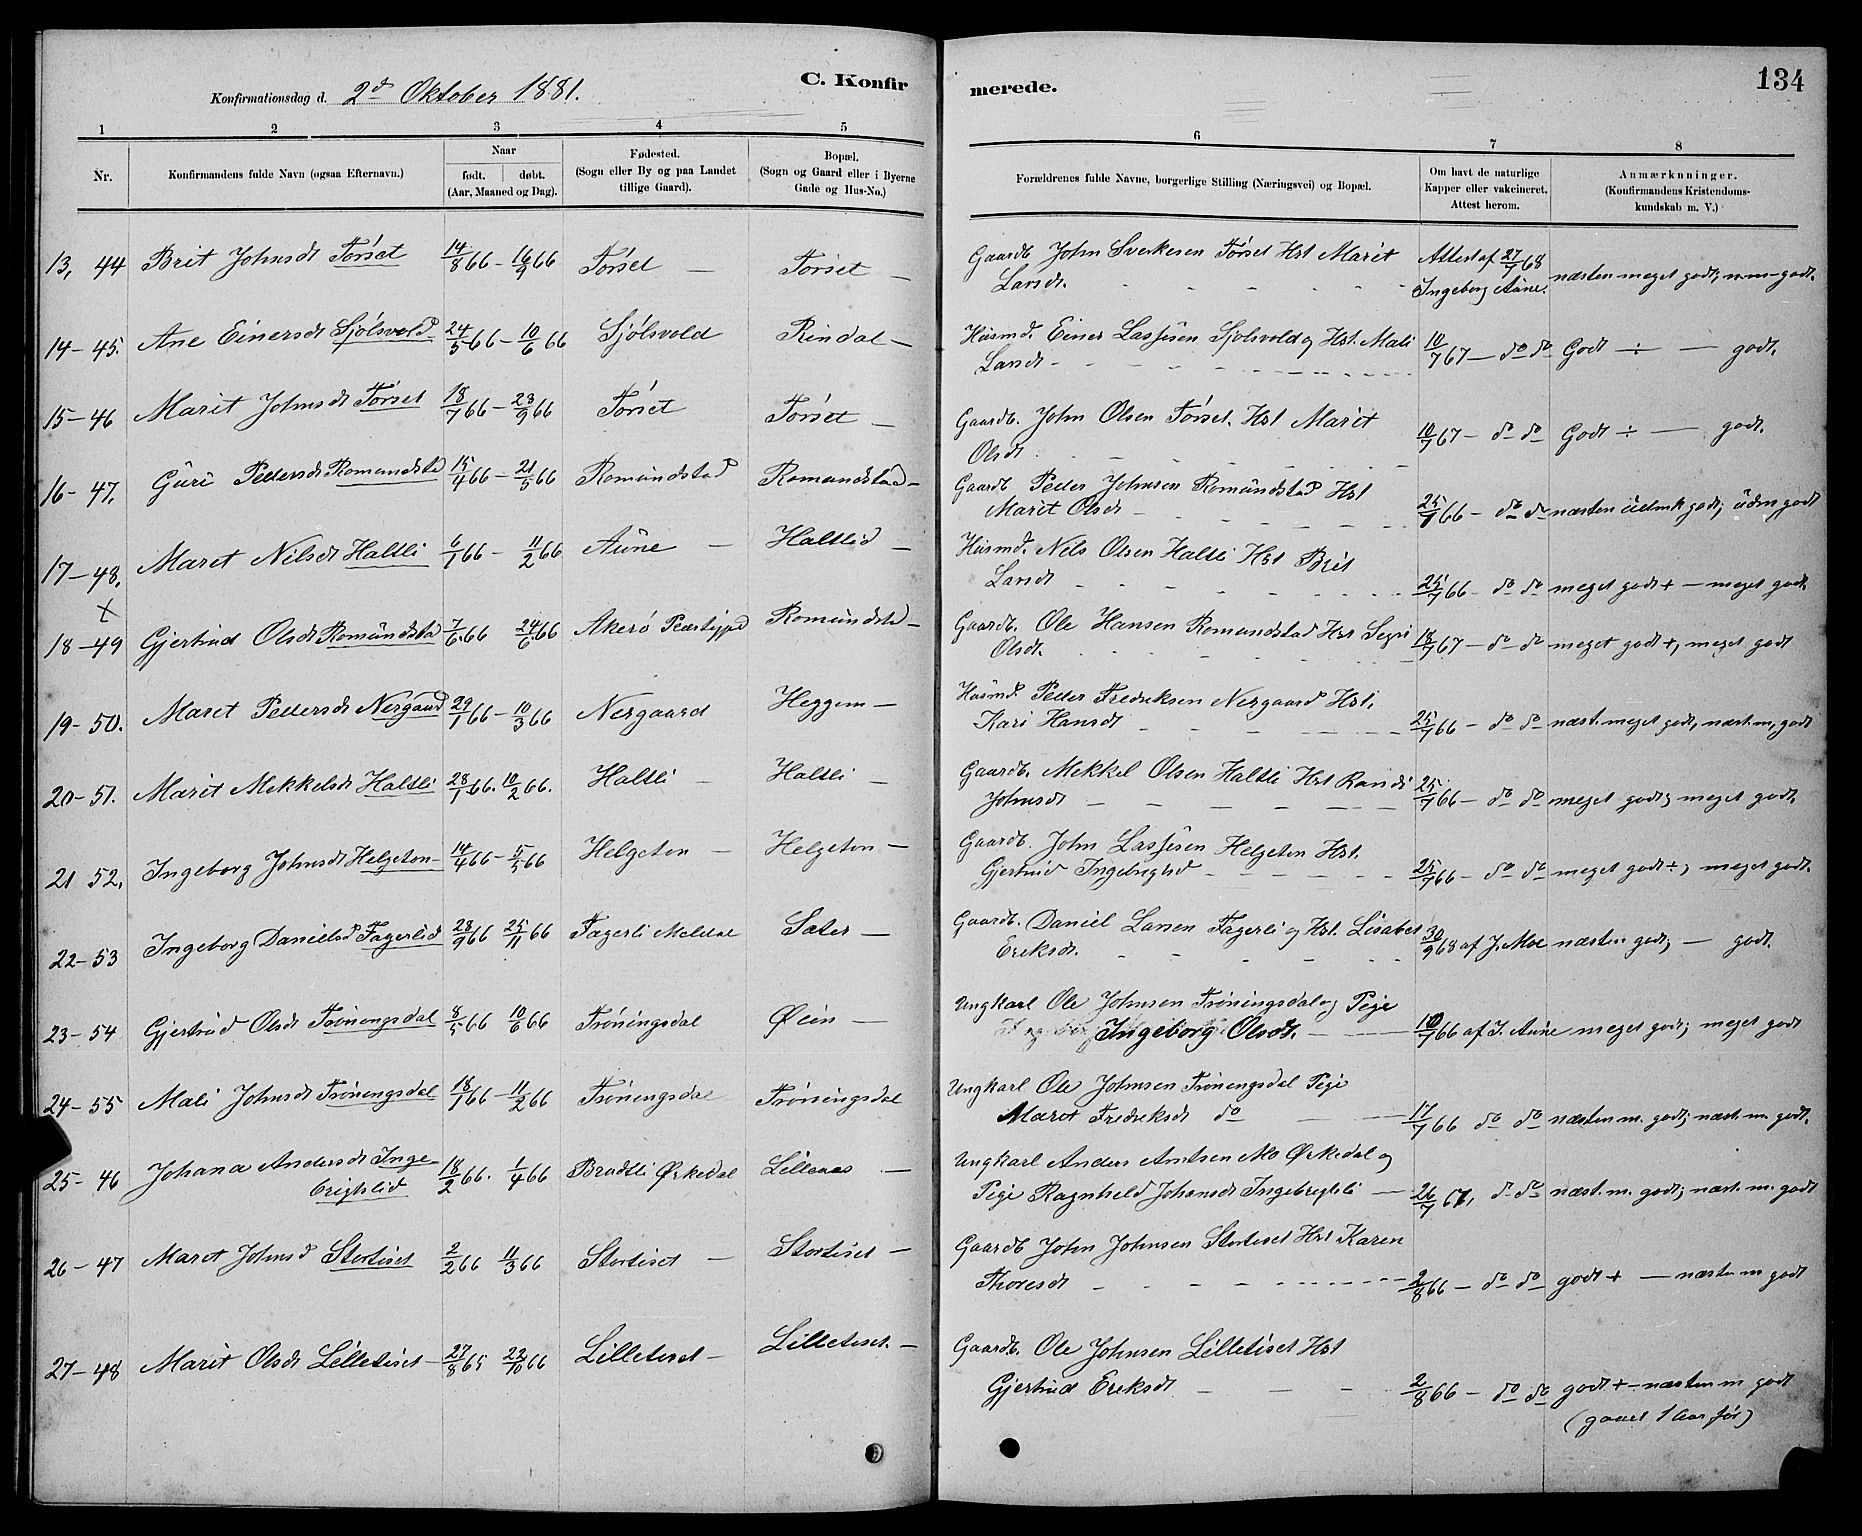 Konfirmationsdag d. 2d Oktober 1881.
C. Konfirmerede.
134
1 2 3 4 5 6 7 8
Nr.
Konfirmandens fulde Navn (ogsaa Efternavn.)
Naar født. døbt. (Aar, Maaned og Dag).
Fødested. (Sogn eller By og paa Landet tillige Gaard).
Bopæl. (Sogn og Gaard eller i Byerne Gade og Hus-No.)
Forældrenes fulde Navne, borgerlige Stilling (Næringsvei) og Bopæl.
Om havt de naturlige Kapper eller vakcineret. Attest herom.
Anmærknninger. (Konfirmandens Kristendoms-kundskab m. V.)
13, 44 Brit Johnsdt Tørset 14/8 66 – 16/9 66 Tørset — Tørset — Gaardb. John Sverkesen Tørset Hst Marit Larsdt. Attest af 27/7 68 Ingeborg Aune. næsten meget godt; n. m – godt.
14 – 45. Ane Einersdt Sjølsvold 24/5 66 – 10/6 66 Sjølsvold Rindal — Husmd. Einer Lassesen Sjølsvold og Hst. Mali Larsdt – 10/7 67 — do do Godt ÷ — godt.
15 – 46 Marit Johnsdt Tørset 18/7 66 – 23/9 66 Tørset Tørset — Gaardb. John Olsen Tørset. Hst Marit Olsdt 10/7 67 – do do Godt ÷ — godt.
16 – 47, Guri Pedersdt Romundsta 15/4 66 – 21/5 66 Romundstad Romundstad – Gaardb Peder Johnsen Romundstad Hst Marit Olsdt – 25/7 66 – do do næsten udmk godt; udm godt
17 – 48, Maret Nilsdt Haltli 6/1 66 – 11/2 66 Aune — Haltlid — Husmd. Nels Olsen Haltli Hst Brit Larsdt 25/7 66 – do do meget godt + — meget godt.
x
18 – 49 Gjertrud Olsdt Romundsta 7/6 66 24/6 66 Akerø Romundsta – Gaardb. Ole Hansen Romundstad Hst Segri Olsdt. 18/7 67 – do do meget godt +, meget godt
19 – 50. Maret Pedersdt Nergaard 29/1 66 – 10/3 66 Nergaard Heggem — Husmd. Peder Fredriksen Nergaard Hst. Kari Hansdt 25/7 66 – do do næst. meget godt, næst. m, godt
20 – 51. Marit Mekkelsdt Haltli 28/1 66. 10/2 66. Haltli — Haltli — Gaardb. Mekkel Olsen Haltli Hst Randi Johnsdt 25/7 66 – do do meget godt; meget godt.
21 52, Ingeborg Johnsdt Helgeton – 14/4 66 – 5/5 66 Helgeton — Helgeton — Gaardb. John Lassesen Helgeton Hst. Gjertrud Ingebrigtsd 25/7 66 – do do meget godt ÷, meget godt.
22 – 53 Ingeborg Danielsd Fagerlid 28/9 66 25/11 66 Fagerli Meldal Sæter — Gaardb. Daniel Larsen Fagerli og Hst. Lisabet Ereksdt. 30/9 68 af J. Moe næsten godt; — godt.
23 – 54 Gjertrud Olsdt Trøningsdal 8/5 66 10/6 66 Trøningsdal Øien — Ungkarl Ole Johnsen Trøningsdal og Pige Ingeborg Olsdt. 10/7 66 af I. Aune meget godt; meget godt
24 – 55 Mali Johnsdt Trøningsdal 18/1 66 – 11/2 66 Trøningsdal Trøningsdal Ungkarl Ole Johnsen Trøningsdal Pige Maret Fredreksdt do 17/7 66 do do næsten m. godt; næst. m. godt.
25 – 46 Johana Andersdt Ingebrigtslid 18/2 66. 1/4 66 Bradtli Ørkedal Lillenes — Ungkarl Anders Arntsen Mo Ørkedal og Pige Ragnheld Johansdt Ingebregtsli — 26/7 67, do do næst. m. godt; næst. m. godt
26 – 47 Maret Johnsd Stortiset 2/2 66 11/3 66 Stortiset — Stortiset — Gaardb John Johnsen Stortiset Hst Karen Thoresdt 2/8 66 – do do godt + — næsten m godt
27 – 48 Marit Olsdt Lilletiset – 27/8 65 22/10 66 Lilletiset – Lilletiset. – Gaardb. Ole Johnsen Lilletiset Hst Gjertrud Ereksdt 2/8 66 – do do godt + – næsten m godt
(gaaet 1 Aar før)